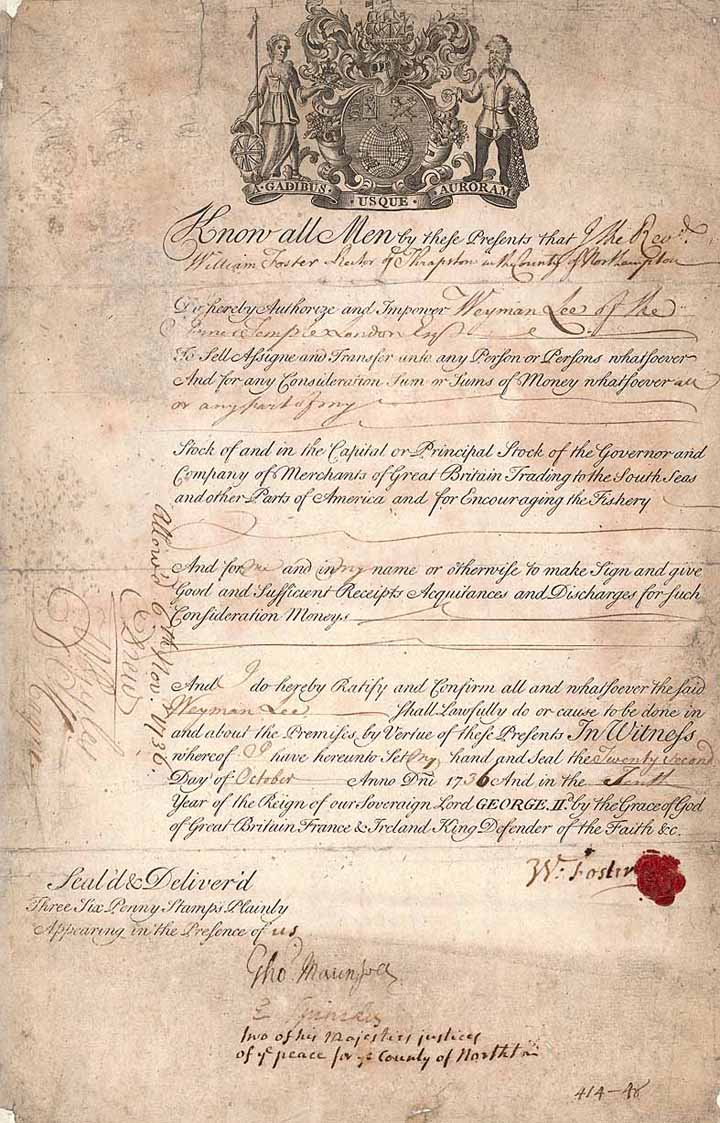 A·GADIBUS· USQUE· AURORAM
Know all Men by these Presents that I the Revd.
William Foster Rector of Thrapston in the County of Northampton
Do hereby Authorize and Impower Weyman Lee of the
Inner Temple London Esqr
To Sell Assigne and Transfer unto any Person or Persons whatsoever
And for any Consideration Sum or Sums of Money whatsoever all
or any part of my
Stock of and in the Capital or Principal Stock of the Governor and
Company of Merchants of Great Britain Trading to the South Seas
and other Parts of America and for Encouraging the Fishery
And for me and in my name or otherwise to make Sign and give
Good and Sufficient Receipts Acquitances and Discharges for such
Consideration Moneys
And I do hereby Ratify and Confirm all and whatsoever the said
Weyman Lee Shall Lawfully do or cause to be done in
and about the Premises by Vertue of these Presents In Witness
whereof I have hereunto Set my hand and Seal the Twenty Second
Day of October Anno Dni 1736 And in the Tenth
Year of the Reign of our Soveraign Lord GEORGE. IId. by the Grace of God
of Great Britain France & Ireland King Defender of the Faith &c.
Allow'd 6th Nov. 1736.
Drew
Wm. Foster
Seal'd & Deliver'd
Three Six Penny Stamps Plainly
Appearing in the Presence of us
Tho. Maunsell
two of his Majesties justices
of ye peace for ye County of Northton
414-48